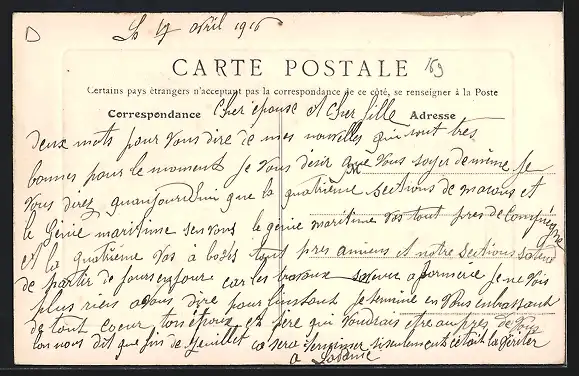 le 4 avril 1916
CARTE POSTALE
169
Certains pays étrangers n'acceptant pas la correspondance de ce côté, se renseigner à la Poste
Correspondance
Adresse
Cher épouse et cher fille
deux mots pour vous dire de mes nouvelles qui sont très
bonnes pour le moment je vous désir que vous soyer de même je
vous direz quaujourdhui que la quatrième sections de macons et
le Génie maritime sen vons le génie maritime vas tout pres de Compiègne
et la quatrième vas à tout pres amiens et notre sections
de partir de jour en jour car les travaux a je ne vois
plus rien a vous dire pour linstant je termine en vous enbrassant
de tout coeur ton époux et père qui voudrais etre aupres de vous
lon nous dit que fin de juillet ca sera terminer si seulement cétait la vériter
a